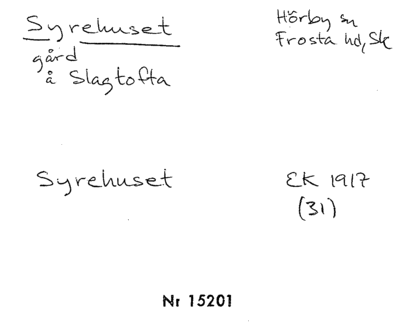 Syrehuset
Hörby sn
Frosta hd, Sk
gård
å Slagtofta
Syrehuset
EK 1917
(31)
Nr 15201